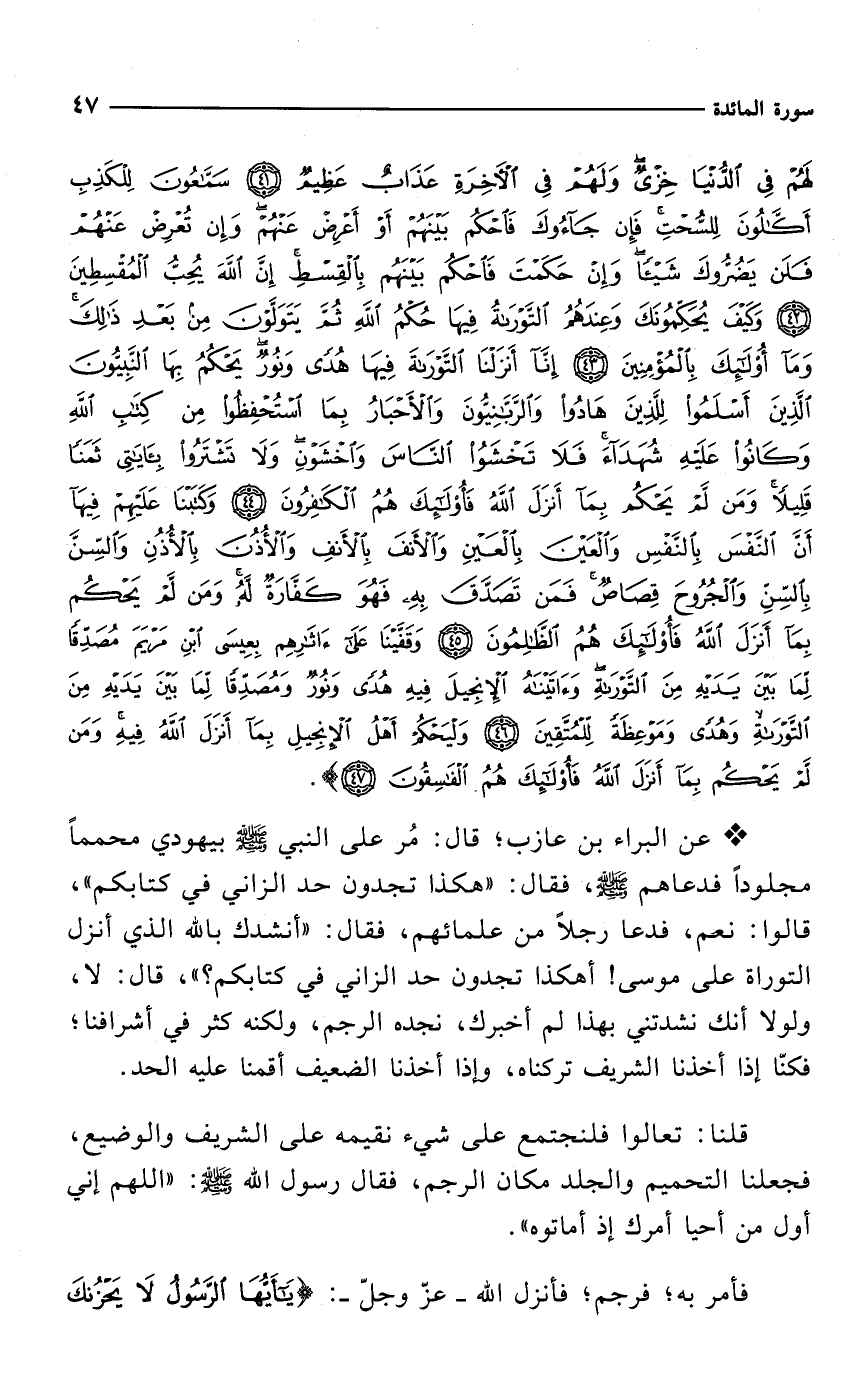 سورة المائدة ٤٧
لَهُمْ فِي ٱلدُّنْيَا خِزْيٌۖ وَلَهُمْ فِي ٱلْآخِرَةِ عَذَابٌ عَظِيمٌ ٤١ سَمَّٰعُونَ لِلْكَذِبِ
أَكَّٰلُونَ لِلسُّحْتِۚ فَإِن جَآءُوكَ فَٱحْكُم بَيْنَهُمْ أَوْ أَعْرِضْ عَنْهُمْۖ وَإِن تُعْرِضْ عَنْهُمْ
فَلَن يَضُرُّوكَ شَيْـًٔاۖ وَإِنْ حَكَمْتَ فَٱحْكُم بَيْنَهُم بِٱلْقِسْطِۚ إِنَّ ٱللَّهَ يُحِبُّ ٱلْمُقْسِطِينَ
٤٢ وَكَيْفَ يُحَكِّمُونَكَ وَعِندَهُمُ ٱلتَّوْرَىٰةُ فِيهَا حُكْمُ ٱللَّهِ ثُمَّ يَتَوَلَّوْنَ مِنۢ بَعْدِ ذَٰلِكَۚ
وَمَآ أُو۟لَٰٓئِكَ بِٱلْمُؤْمِنِينَ ٤٣ إِنَّآ أَنزَلْنَا ٱلتَّوْرَىٰةَ فِيهَا هُدًى وَنُورٌۖ يَحْكُمُ بِهَا ٱلنَّبِيُّونَ
ٱلَّذِينَ أَسْلَمُوا۟ لِلَّذِينَ هَادُوا۟ وَٱلرَّبَّٰنِيُّونَ وَٱلْأَحْبَارُ بِمَا ٱسْتُحْفِظُوا۟ مِن كِتَٰبِ ٱللَّهِ
وَكَانُوا۟ عَلَيْهِ شُهَدَآءَۚ فَلَا تَخْشَوُا۟ ٱلنَّاسَ وَٱخْشَوْنِۖ وَلَا تَشْتَرُوا۟ بِـَٔايَٰتِي ثَمَنًا
قَلِيلًاۚ وَمَن لَّمْ يَحْكُم بِمَآ أَنزَلَ ٱللَّهُ فَأُو۟لَٰٓئِكَ هُمُ ٱلْكَٰفِرُونَ ٤٤ وَكَتَبْنَا عَلَيْهِمْ فِيهَآ
أَنَّ ٱلنَّفْسَ بِٱلنَّفْسِ وَٱلْعَيْنَ بِٱلْعَيْنِ وَٱلْأَنفَ بِٱلْأَنفِ وَٱلْأُذُنَ بِٱلْأُذُنِ وَٱلسِّنَّ
بِٱلسِّنِّ وَٱلْجُرُوحَ قِصَاصٌۚ فَمَن تَصَدَّقَ بِهِۦ فَهُوَ كَفَّارَةٌ لَّهُۥۚ وَمَن لَّمْ يَحْكُم
بِمَآ أَنزَلَ ٱللَّهُ فَأُو۟لَٰٓئِكَ هُمُ ٱلظَّٰلِمُونَ ٤٥ وَقَفَّيْنَا عَلَىٰٓ ءَاثَٰرِهِم بِعِيسَى ٱبْنِ مَرْيَمَ مُصَدِّقًا
لِّمَا بَيْنَ يَدَيْهِ مِنَ ٱلتَّوْرَىٰةِۖ وَءَاتَيْنَٰهُ ٱلْإِنجِيلَ فِيهِ هُدًى وَنُورٌ وَمُصَدِّقًا لِّمَا بَيْنَ يَدَيْهِ مِنَ
ٱلتَّوْرَىٰةِ وَهُدًى وَمَوْعِظَةً لِّلْمُتَّقِينَ ٤٦ وَلْيَحْكُمْ أَهْلُ ٱلْإِنجِيلِ بِمَآ أَنزَلَ ٱللَّهُ فِيهِۚ وَمَن
لَّمْ يَحْكُم بِمَآ أَنزَلَ ٱللَّهُ فَأُو۟لَٰٓئِكَ هُمُ ٱلْفَٰسِقُونَ ٤٧﴾.
❖ عن البراء بن عازب؛ قال: مُر على النبي ﷺ بيهودي محمماً
مجلوداً فدعاهم ﷺ، فقال: «هكذا تجدون حد الزاني في كتابكم»،
قالوا: نعم، فدعا رجلاً من علمائهم، فقال: «أنشدك بالله الذي أنزل
التوراة على موسى! أهكذا تجدون حد الزاني في كتابكم؟»، قال: لا،
ولولا أنك نشدتني بهذا لم أخبرك، نجده الرجم، ولكنه كثر في أشرافنا؛
فكنّا إذا أخذنا الشريف تركناه، وإذا أخذنا الضعيف أقمنا عليه الحد.
قلنا: تعالوا فلنجتمع على شيء نقيمه على الشريف والوضيع،
فجعلنا التحميم والجلد مكان الرجم، فقال رسول الله ﷺ: «اللهم إني
أول من أحيا أمرك إذ أماتوه».
فأمر به؛ فرجم؛ فأنزل الله ـ عزّ وجلّ ـ: ﴿يَٰٓأَيُّهَا ٱلرَّسُولُ لَا يَحْزُنكَ